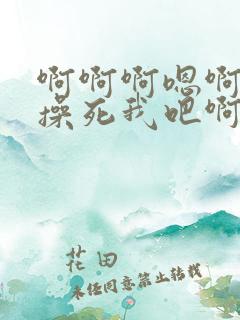 啊啊啊嗯啊
操死我吧啊
花田
未经同意禁止转载